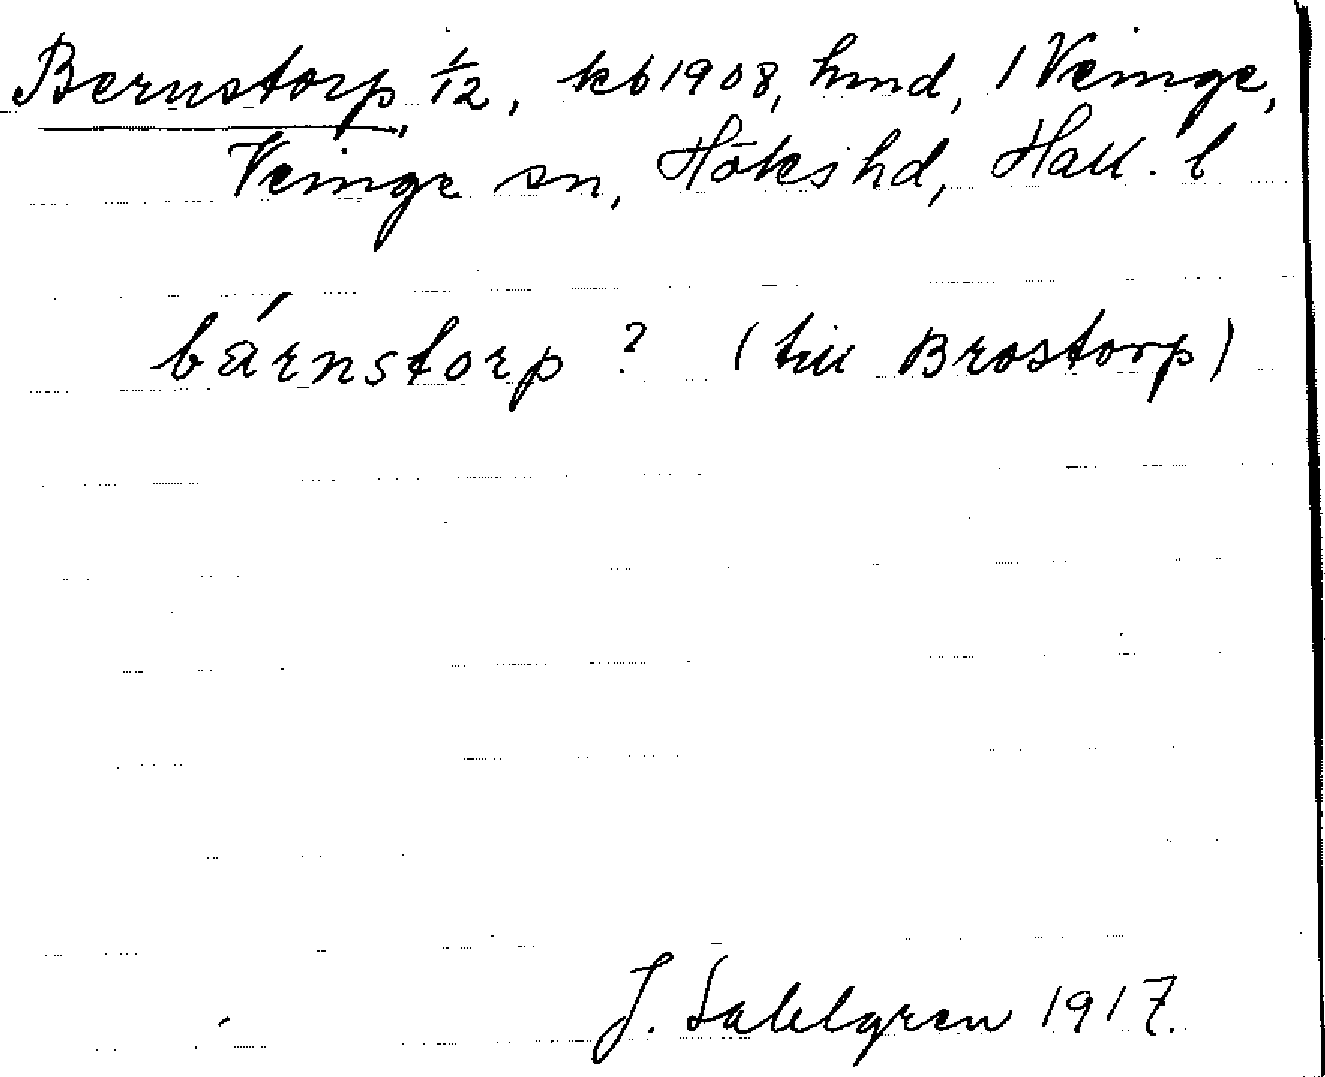 Bernstorp, 1/12, kb 1908, hmd, 1 Veinge,
Veinge sn, Höks hd, Hall. l
bárnstorp ? (till Brostorp)
J. Sahlgren 1917.